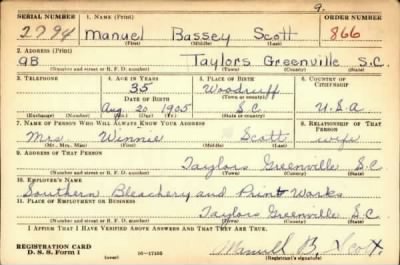 9.
SERIAL NUMBER 1. NAME (Print) ORDER NUMBER
2794 Manuel Bassey Scott 866
(First) (Middle) (Last)
2. ADDRESS (Print)
9B Taylors Greenville S.C.
(Number and street or R. F. D. number) (Town) (County) (State)
3. TELEPHONE 4. AGE IN YEARS 5. PLACE OF BIRTH 6. COUNTRY OF CITIZENSHIP
35 Woodruff
DATE OF BIRTH
Aug. 20 1905 S.C. U.S.A
(Exchange) (Number) (Mo.) (Day) (Yr.) (State or country)
7. NAME OF PERSON WHO WILL ALWAYS KNOW YOUR ADDRESS 8. RELATIONSHIP OF THAT PERSON
Mrs. Winnie Scott wife
(Mr., Mrs., Miss) (First) (Middle) (Last)
9. ADDRESS OF THAT PERSON
Taylors Greenville S.C
(Number and street or R. F. D. number) (Town) (County) (State)
10. EMPLOYER'S NAME
Southern Bleachery and Print Works
11. PLACE OF EMPLOYMENT OR BUSINESS
Taylors Greenville S.C.
(Number and street or R. F. D. number) (Town) (County) (State)
I AFFIRM THAT I HAVE VERIFIED ABOVE ANSWERS AND THAT THEY ARE TRUE.
REGISTRATION CARD
D. S. S. Form 1 16-17105 Manuel B. Scott
(Registrant's signature)